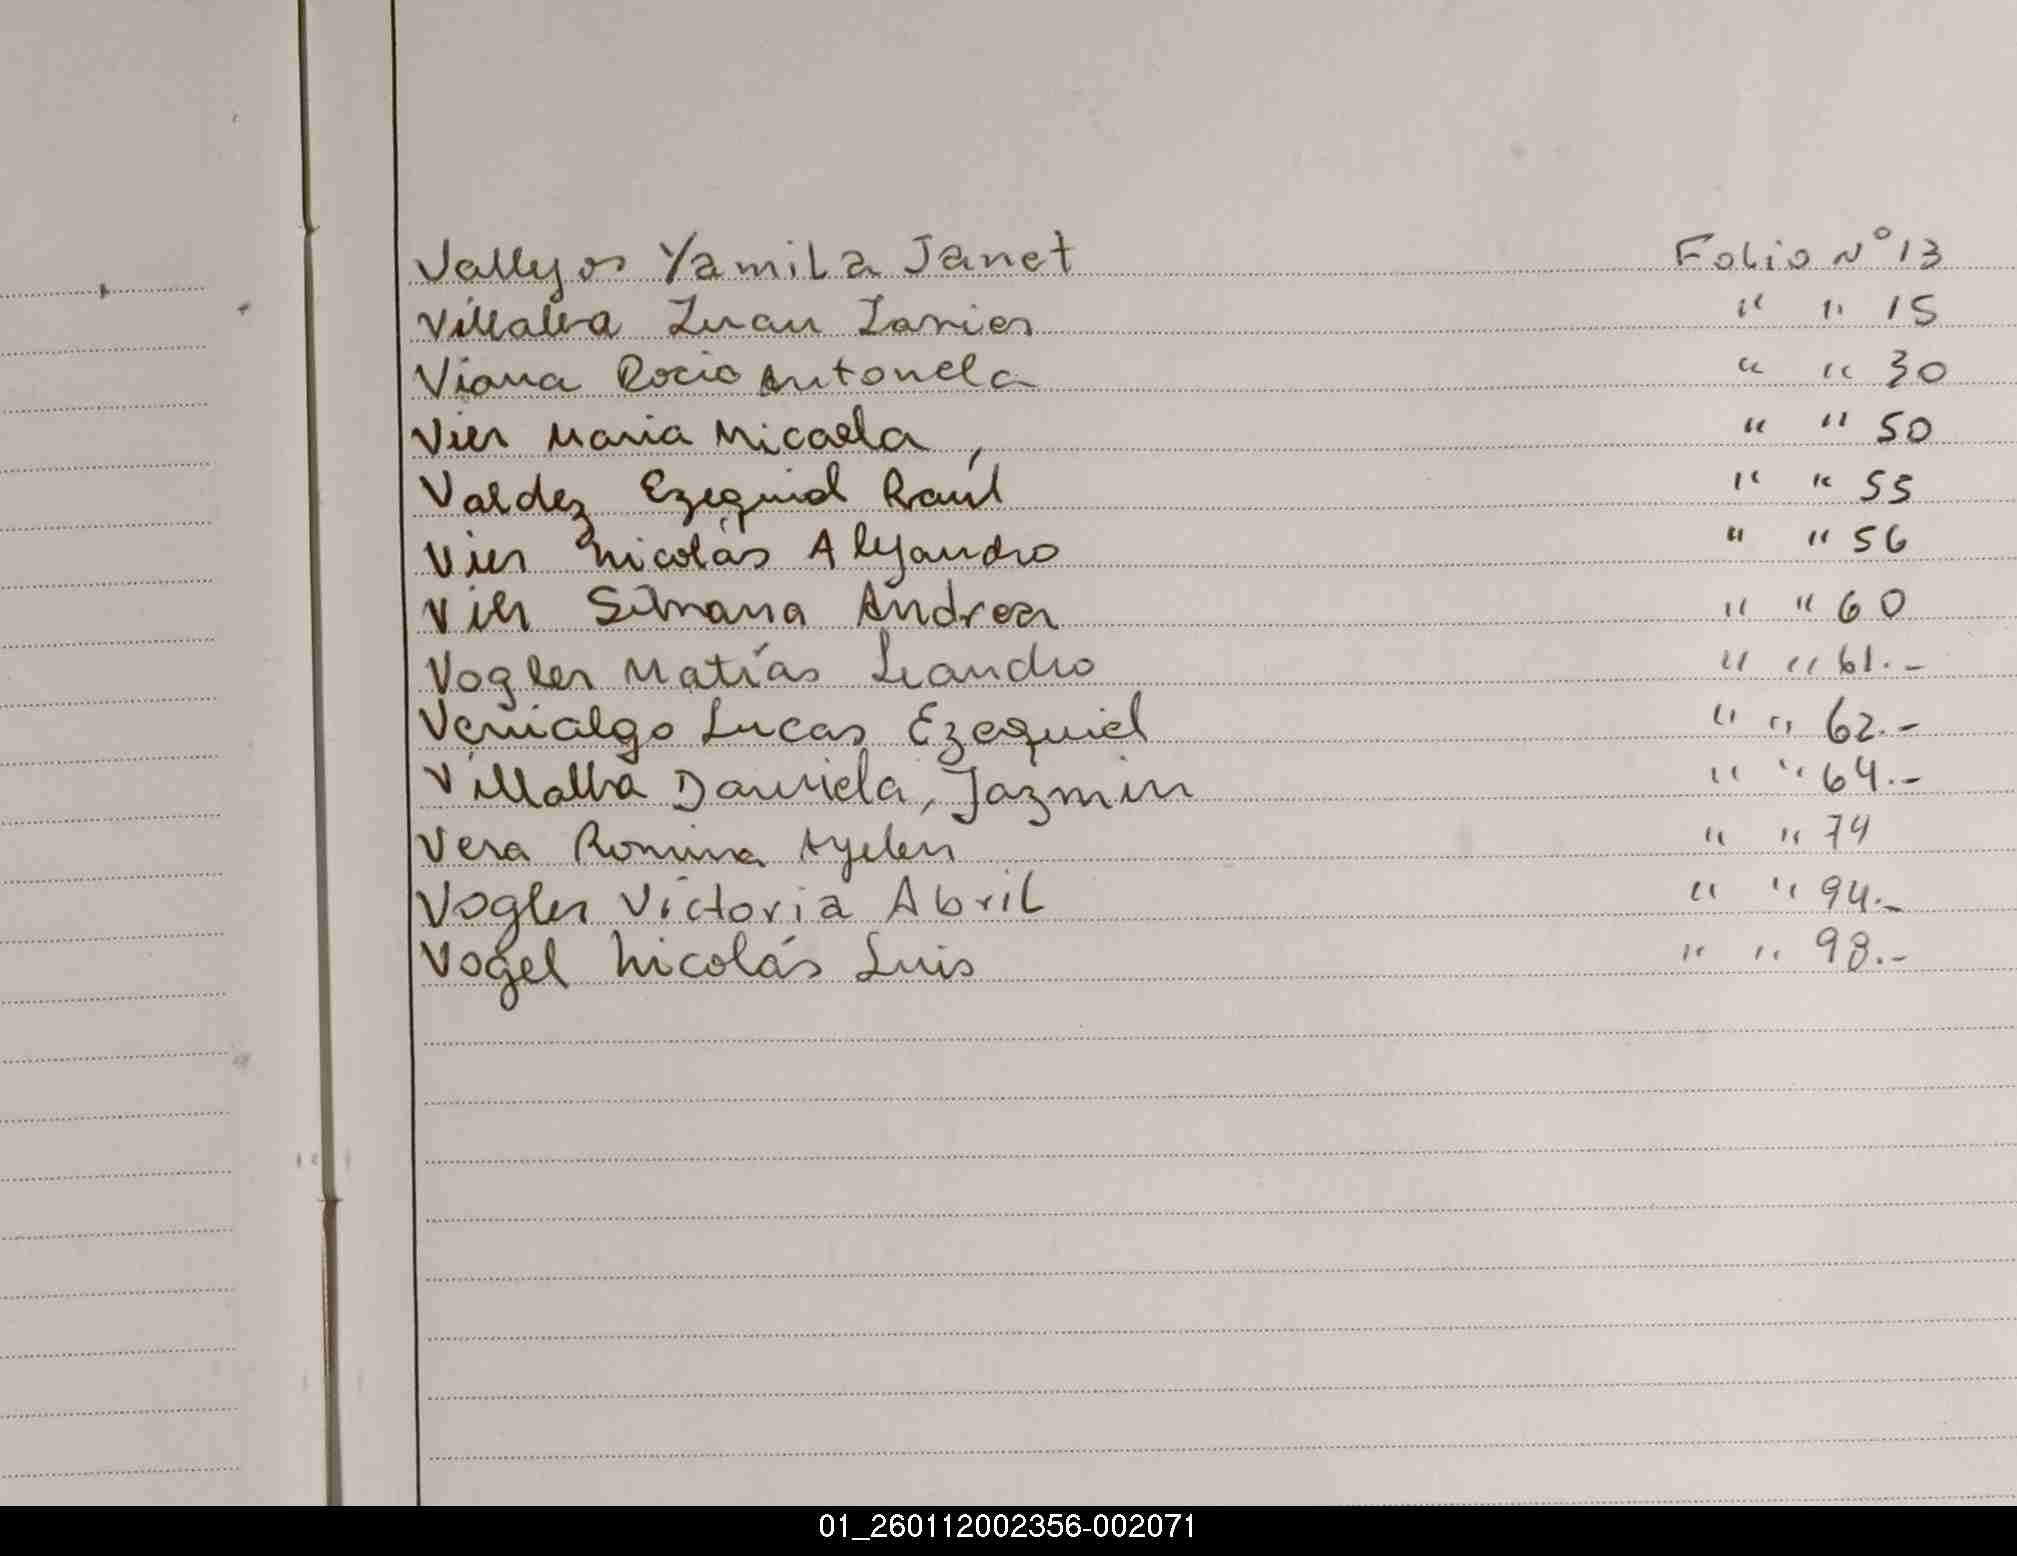 Vallejos Yamila Janet Folio N° 13
Villalba Juan Javier " " 15
Viana Rocio Antonela " " 30
Vier Maria Micaela " " 50
Valdez Ezequiel Raúl " " 55
Vier Nicolás Alejandro " " 56
Vier Silvana Andrea " " 60
Vogler Matías Leandro " " 61.-
Venialgo Lucas Ezequiel " " 62.-
Villalba Daniela, Jazmin " " 64.-
Vera Romina Ayelen " " 74
Vogler Victoria Abril " " 94.-
Vogel Nicolás Luis " " 98.-
01_260112002356-002071